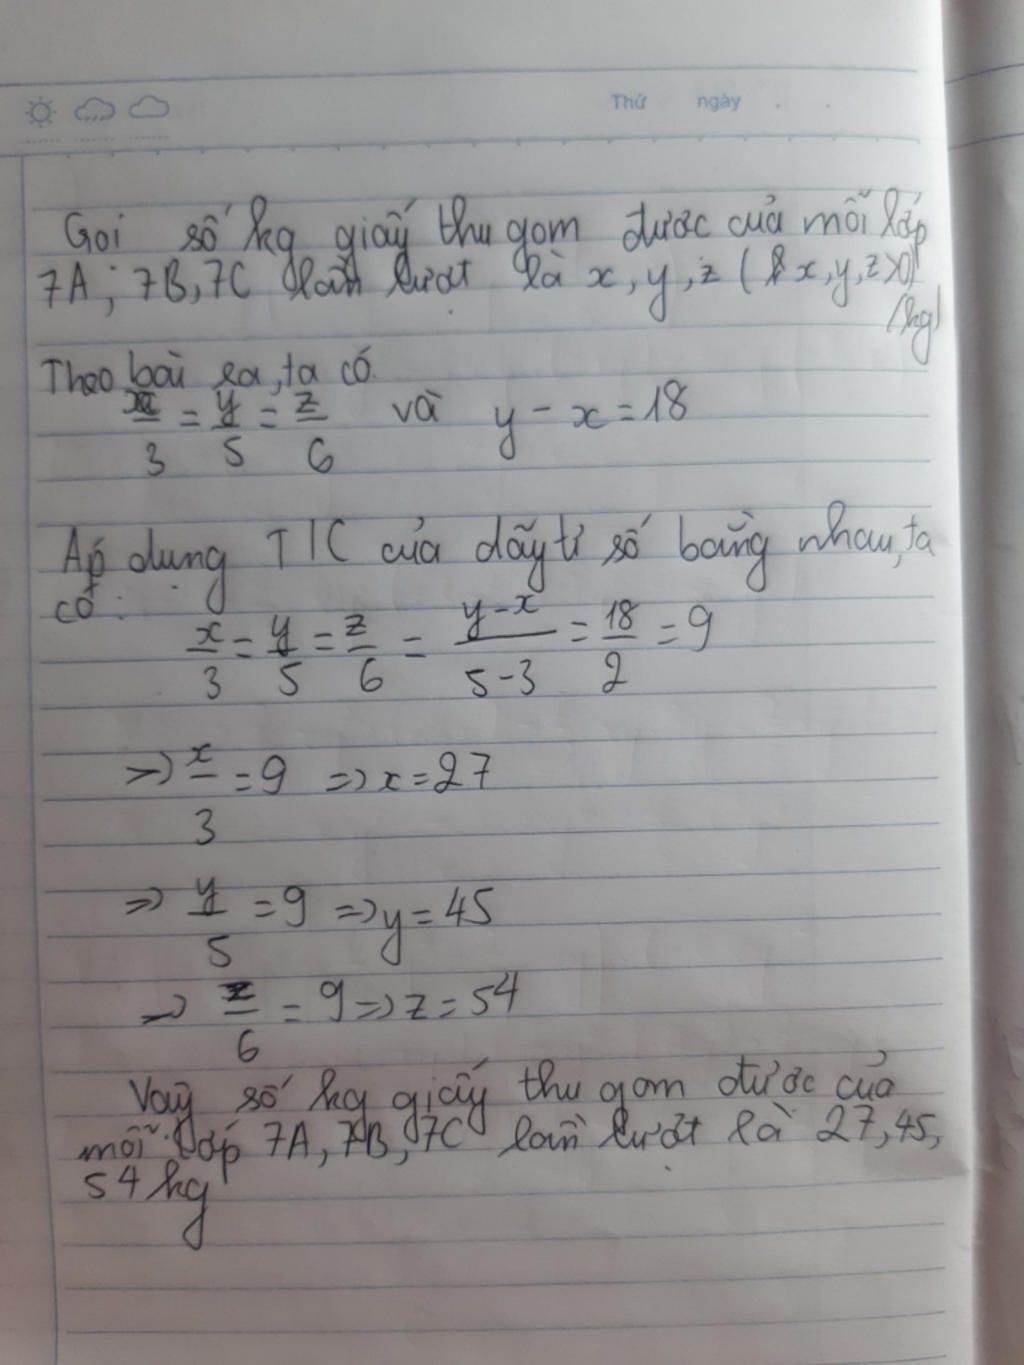 Thứ ngày . .
Gọi số kg giấy thu gom được của mỗi lớp
7A; 7B, 7C lần lượt là x, y, z ( x, y, z >0)
(kg)
Theo bài ra, ta có
x/3 = y/5 = z/6 và y - x = 18
Áp dụng T/C của dãy tỉ số bằng nhau, ta
có:
x/3 = y/5 = z/6 = y-x/5-3 = 18/2 = 9
=> x/3 = 9 => x = 27
=> y/5 = 9 => y = 45
=> z/6 = 9 => z = 54
Vậy số kg giấy thu gom được của
mỗi lớp 7A, 7B, 7C lần lượt là 27, 45,
54 kg